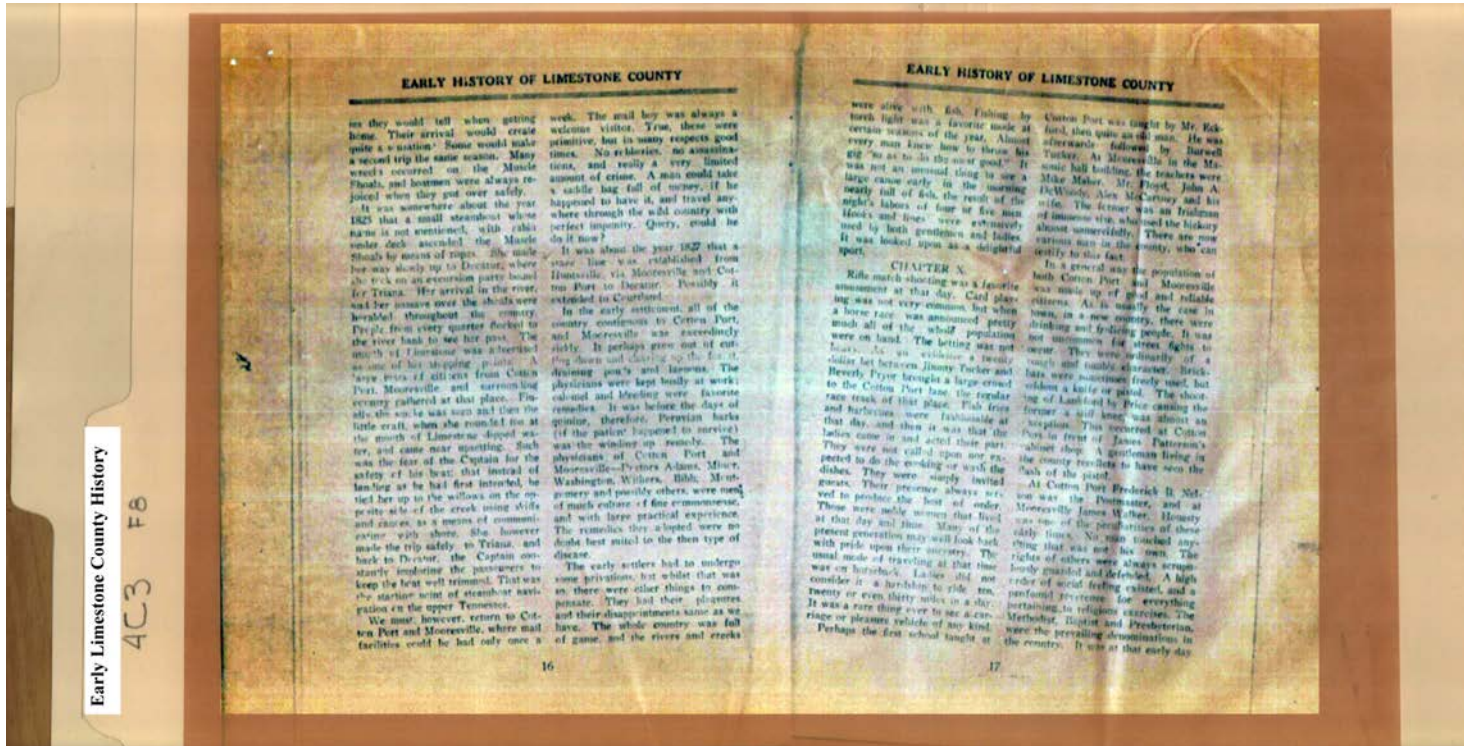 EARLY HISTORY OF LIMESTONE COUNTY
they would tell when getting
home. Their arrival would create
quite a sensation. Some would make
a second trip the same season. Many
wrecks occurred on the Muscle
Shoals, and boatmen were always re-
joiced when they got over safely.
It was somewhere about the year
1825 that a small steamboat whose
name is not mentioned, with cabin
under deck ascended the Muscle
Shoals by means of ropes. She made
her way slowly up to Decatur, where
she took on an excursion party bound
for Triana. Her arrival in the river,
and her passage over the shoals were
heralded throughout the country.
People from every quarter flocked to
the river bank to see her pass. The
mouth of Limestone was advertised
as one of her stopping points. A
large mass of citizens from Cotton
Port, Mooresville and surrounding
country gathered at that place. Fin-
ally the smoke was seen and then the
little craft, when she rounded too at
the mouth of Limestone dipped wa-
ter, and came near upsetting. Such
was the fear of the Captain for the
safety of his boat that instead of
landing as he had first intended, he
tied her up to the willows on the op-
posite side of the creek using skiffs
and canoes, as a means of communi-
cating with shore. She however
made the trip safely to Triana, and
back to Decatur, the Captain con-
stantly imploring the passengers to
keep the boat well trimmed. That was
the starting point of steamboat navi-
gation on the upper Tennessee.
We must, however, return to Cot-
ton Port and Mooresville, where mail
facilities could be had only once a
week. The mail boy was always a
welcome visitor. True, these were
primitive, but in many respects good
times. No robberies, no assassina-
tions, and really a very limited
amount of crime. A man could take
a saddle bag full of money, if he
happened to have it, and travel any-
where through the wild country with
perfect impunity. Query, could he
do it now?
It was about the year 1827 that a
stage line was established from
Huntsville, via Mooresville and Cot-
ton Port to Decatur. Possibly it
extended to Courtland.
In the early settlement, all of the
country contiguous to Cotton Port,
and Mooresville was exceedingly
sickly. It perhaps grew out of cut-
ting down and clearing up the forest,
draining ponds and lagoons. The
physicians were kept busily at work
calomel and bleeding were favorite
remedies. It was before the days of
quinine, therefore, Peruvian barks
(if the patient happened to survive)
was the winding up remedy. The
physicians of Cotton Port and
Mooresville—Doctors Adams, Minor,
Washington, Withers, Bibb, Mont-
gomery and possibly others, were men
of much culture of fine commonsense,
and with large practical experience.
The remedies they adopted were no
doubt best suited to the then type of
disease.
The early settlers had to undergo
some privations, but whilst that was
so, there were other things to com-
pensate. They had their pleasures
and their disappointments same as we
have. The whole country was full
of game, and the rivers and creeks
16
EARLY HISTORY OF LIMESTONE COUNTY
were alive with fish. Fishing by
torch light was a favorite mode at
certain seasons of the year. Almost
every man knew how to throw his
gig "so as to do the most good." It
was not an unusual thing to see a
large canoe early in the morning
nearly full of fish, the result of the
night's labors of four or five men
Hooks and lines were extensively
used by both gentlemen and ladies.
It was looked upon as a delightful
sport.
CHAPTER X.
Rifle match shooting was a favorite
amusement at that day. Card play-
ing was not very common, but when
a horse race was announced pretty
much all of the whole population
were on hand. The betting was not
heavy. As an evidence a twenty
dollar bet between Jimmy Tucker and
Beverly Pryor brought a large crowd
to the Cotton Port lane, the regular
race track of this place. Fish fries
and barbecues were fashionable at
that day, and then it was that the
ladies came in and acted their part.
They were not called upon nor ex-
pected to do the cooking or wash the
dishes. They were simply invited
guests. Their presence always ser-
ved to produce the best of order.
Those were noble women that lived
at that day and time. Many of the
present generation may well look back
with pride upon their ancestry. The
usual mode of traveling at that time
was on horseback. Ladies did not
consider it a hardship to ride ten,
twenty or even thirty miles in a day.
It was a rare thing ever to see a car-
riage or pleasure vehicle of any kind.
Perhaps the first school taught at
Cotton Port was taught by Mr. Eck-
ford, then quite an old man. He was
afterwards followed by Burwell
Tucker. At Mooresville in the Ma-
sonic hall building, the teachers were
Mike Maher, Mr. Floyd, John A.
DeWoody, Allen McCartney and his
wife. The former was an Irishman
of immense size, who used the hickory
almost unmercifully. There are now
various men in the county, who can
testify to this fact.
In a general way the population of
both Cotton Port and Mooresville
was made up of good and reliable
citizens. As is usually the case in
town, in a new country, there were
drinking and frolicing people. It was
not uncommon for street fights to
occur. They were ordinarily of a
rough and tumble character. Brick-
bats were sometimes freely used, but
seldom a knife or pistol. The shoot-
ing of Lankford by Price causing the
former a stiff knee, was almost an
exception. This occurred at Cotton
Port in front of James Patterson's
cabinet shop. A gentleman living in
the county recollects to have seen the
flash of the pistol.
At Cotton Port Frederick B. Nel-
son was the Postmaster, and at
Mooresville James Walker. Honesty
was one of the peculiarities of those
early times. No man touched any-
thing that was not his own. The
rights of others were always scrupu-
lously guarded and defended. A high
order of social feeling existed, and a
profound reverence for everything
pertaining to religious exercises. The
Methodist, Baptist and Presbyterian,
were the prevailing denominations in
the country. It was at that early day
17
Early Limestone County History
4C3 F8